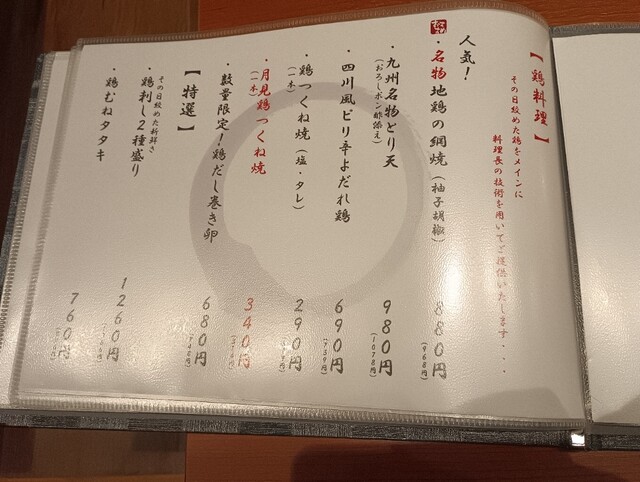 【鶏料理】
その日絞めた鶏をメインに
料理長の技術を用いてご提供いたします・・・
人気！
・名物地鶏の網焼（柚子胡椒） 880円
(968円)
・九州名物とり天 980円
(おろしポン酢添え) (1078円)
・四川風ピリ辛よだれ鶏 690円
(759円)
・鶏つくね焼（塩・タレ） 290円
(一本)
・月見鶏つくね焼 340円
(一本)
・数量限定！鶏だし巻き卵 680円
(748円)
【特選】
その日絞めた新鮮さ
・鶏刺し2種盛り 1260円
・鶏むねタタキ 760円